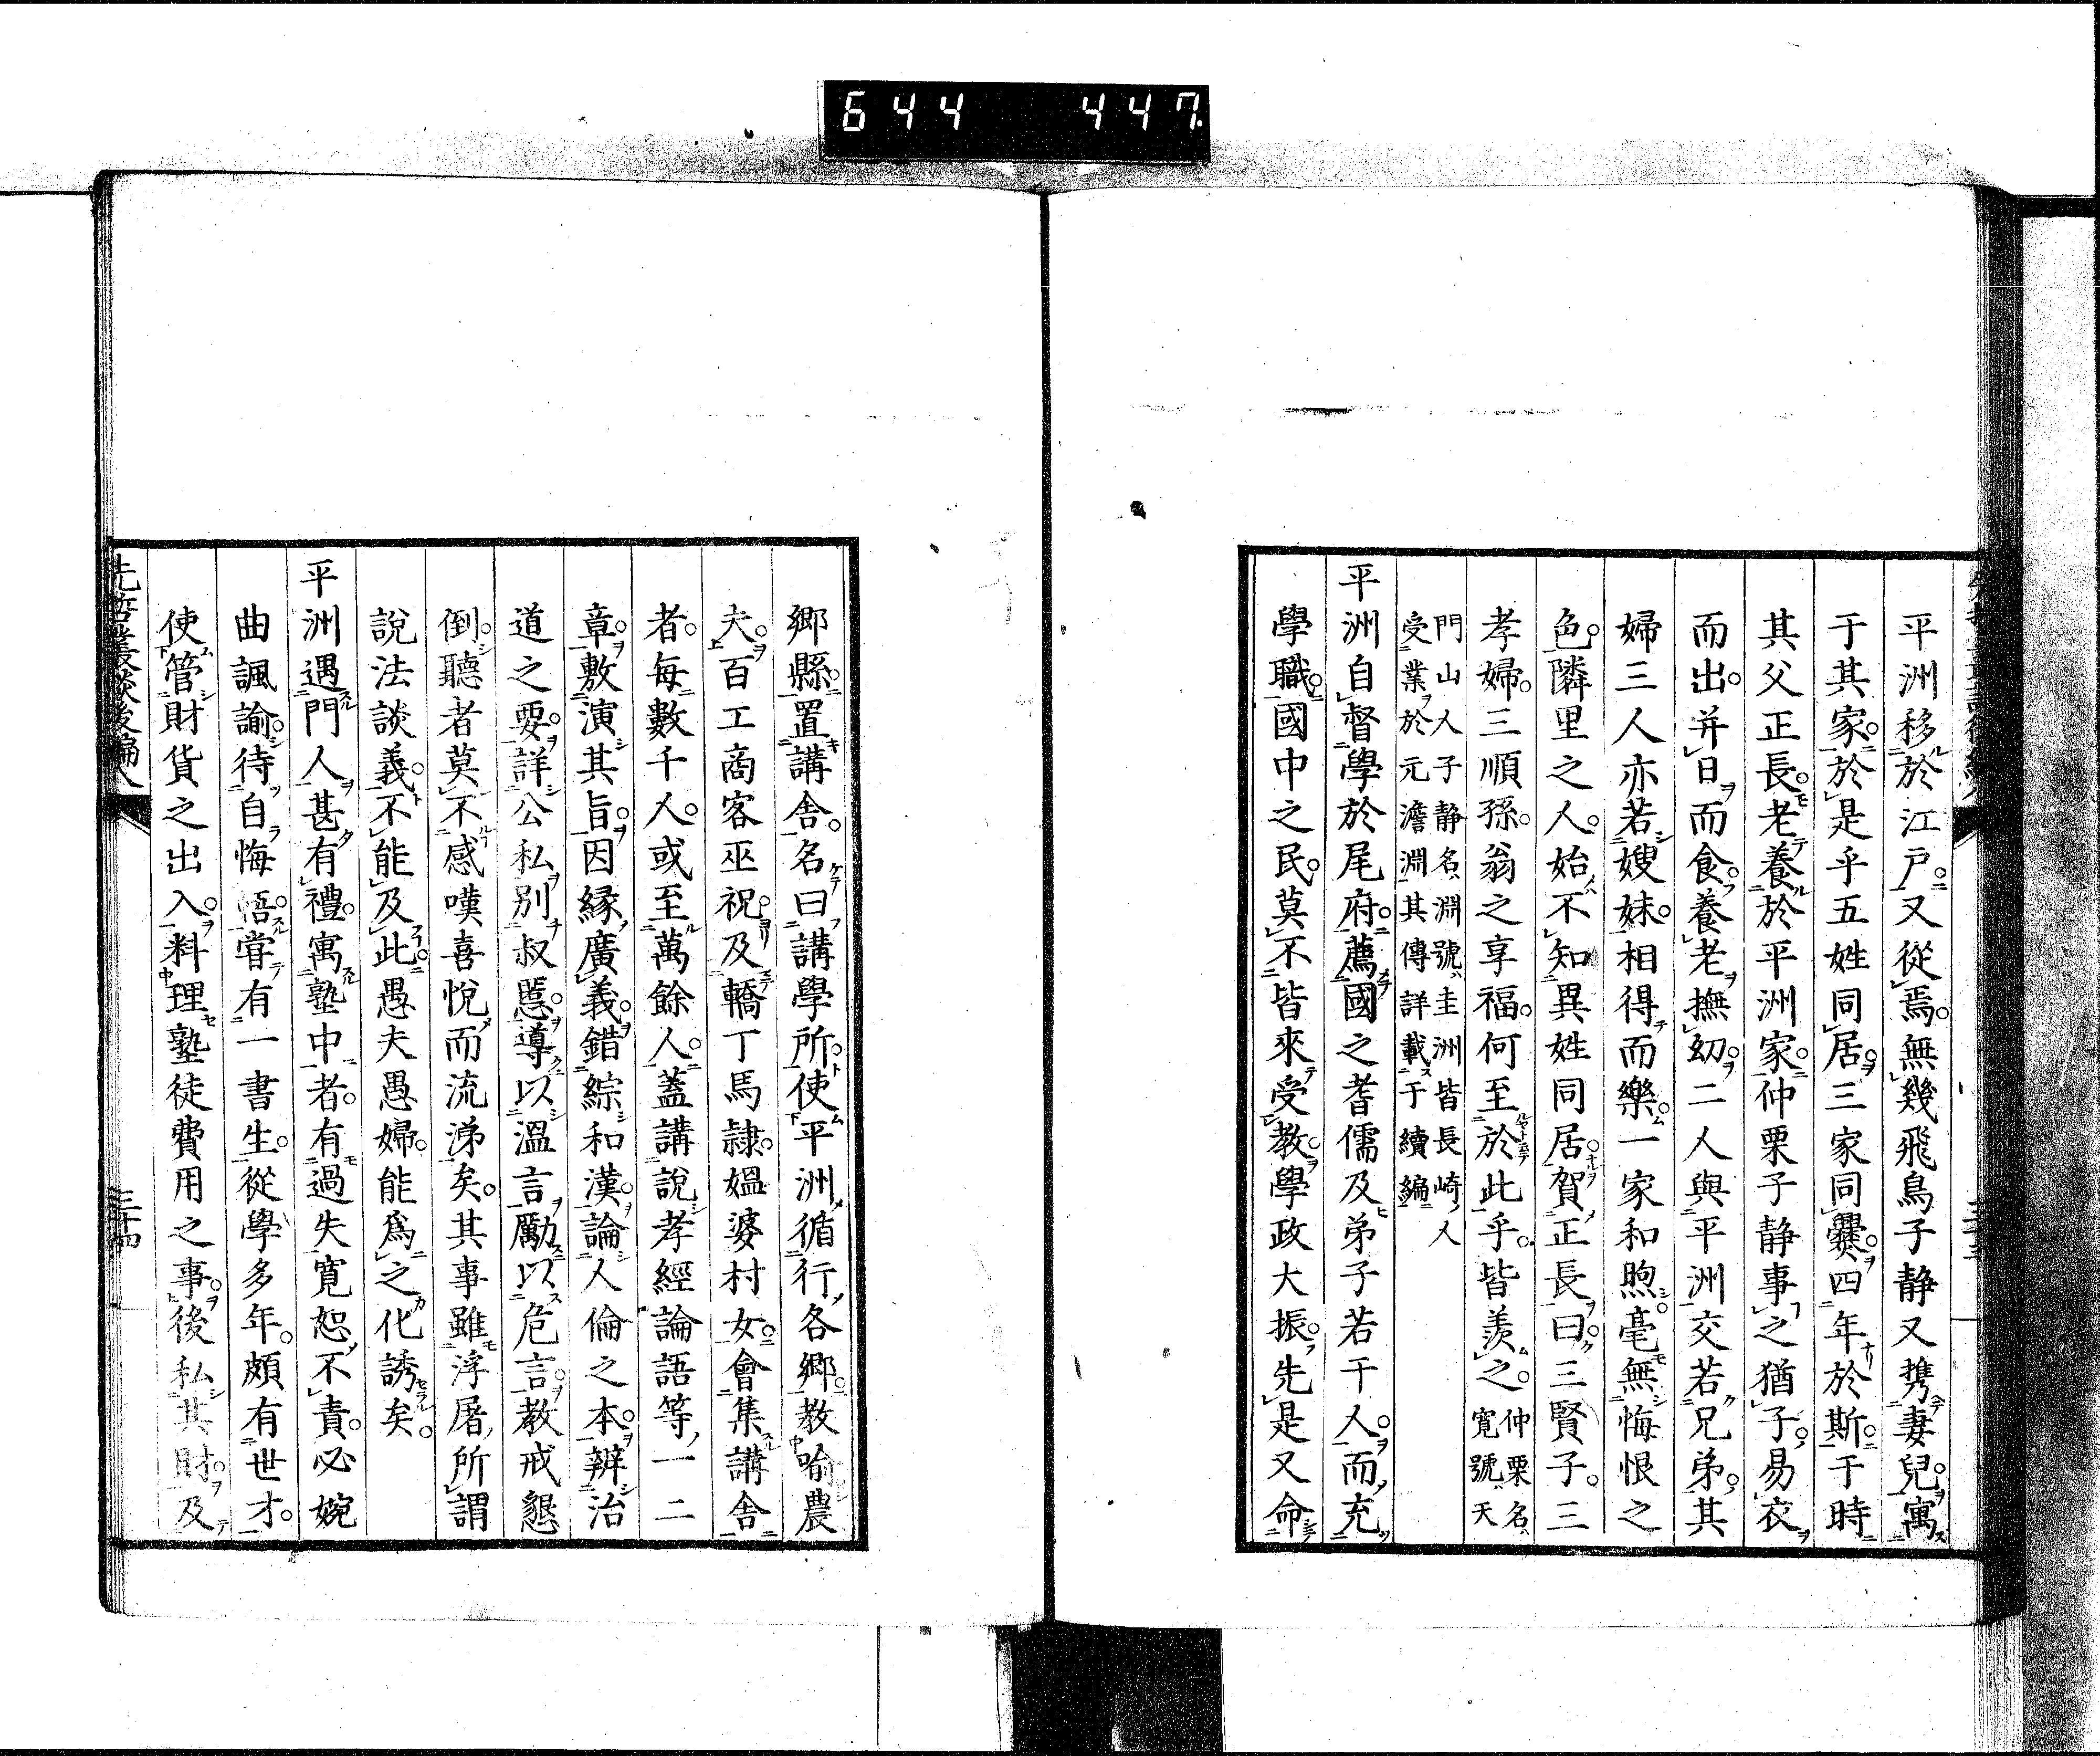 644 447
平洲移於江戸。又從焉。無幾飛鳥子静又携妻兒。寓
于其家。於是乎五姓同居。三家同爨。四年於斯。于時
其父正長。老養於平洲家。仲栗子静事之猶子。易衣
而出。并日而食。養老撫幼。二人與平洲交若兄弟。其
婦三人亦若嫂妹。相得而樂。一家和煦。毫無悔恨之
色。隣里之人。始不知異姓同居。賀正長曰。三賢子。三
孝婦。三順孫。翁之享福。何至於此乎。皆羨之。仲栗名寛號天
門山人子静名淵號圭洲皆長崎人受業於元澹淵其傳詳載于續編
平洲自督學於尾府。薦國之耆儒及弟子若干人。而充
學職。國中之民。莫不皆來受教。學政大振。先是又命
郷縣置講舎。名曰講學所。使平洲循行各郷。教喩農
夫。百工商客巫祝。及轎丁馬隷。媼婆村女。會集講舎
者。毎數千人。或至萬餘人。蓋講說孝經論語等一二
章。敷演其旨。因縁廣義。錯綜和漢。論人倫之本。辨治
道之要。詳公私別叔慝。導以溫言。勵以危言。教戒懇
倒。聽者莫不感嘆喜悅而流涕矣。其事雖浮屠所謂
說法談義。不能及此。愚夫愚婦。能爲之化誘矣。
平洲遇門人甚有禮。寓塾中者。有過失寛恕不責。必婉
曲諷諭。待自悔悟。嘗有一書生。從學多年。頗有世才。
使管財貨之出入。料理塾徒費用之事。後私其財。及
先哲叢談後編八
三十四